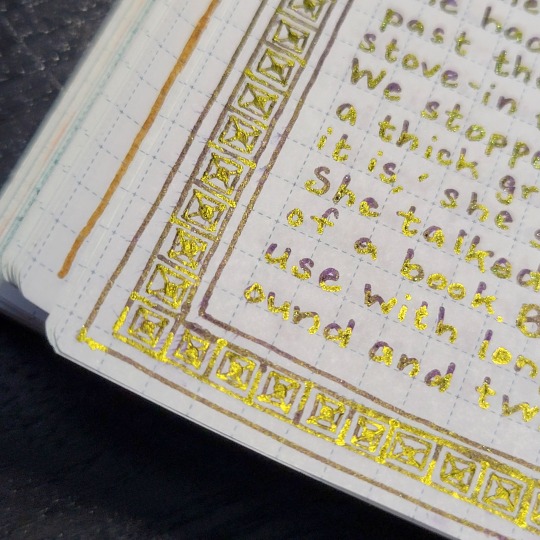 had
past th
stove-in
We stopp
a thick gr
it is, she s
She talked
of a book.
use with lon
ound and tw